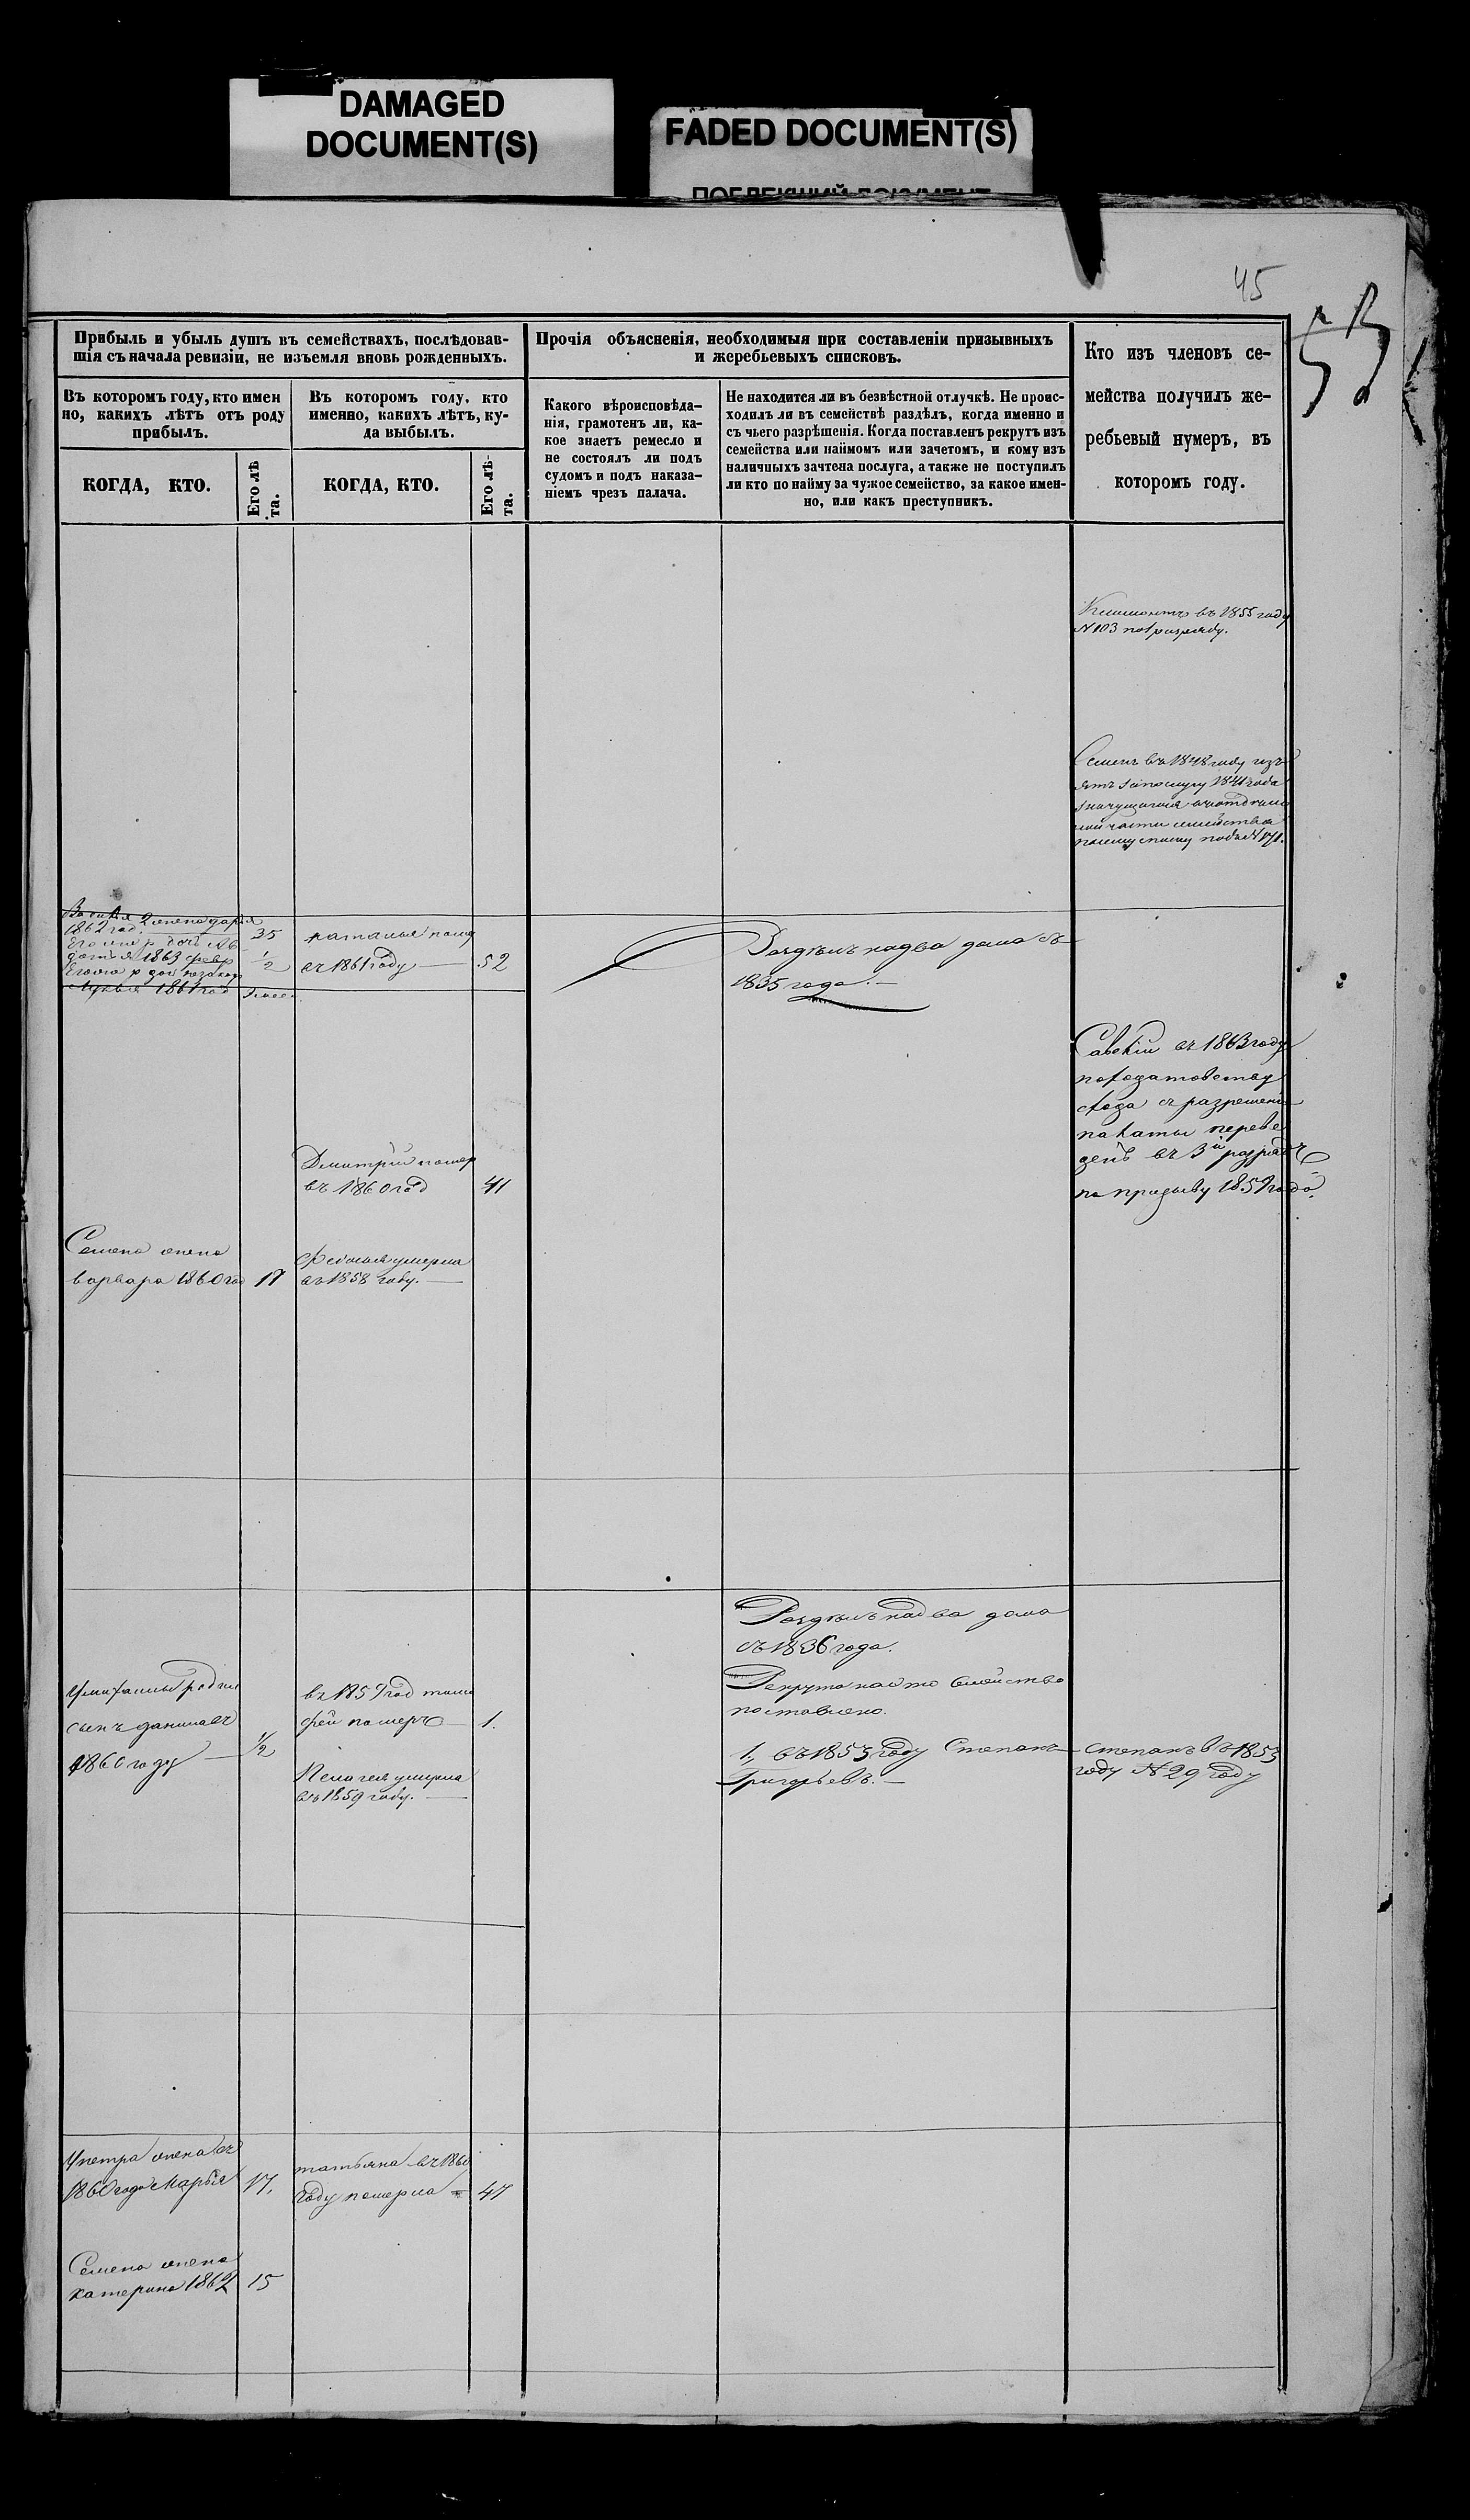 DAMAGED
DOCUMENT(S)
FADED DOCUMENT(S)
ПОБЛЕКШИЙ ДОКУМЕНТ
45
Прибыль и убыль душъ въ семействахъ, послѣдовав-
шія съ начала ревизіи, не изъемля вновь рожденныхъ.
Прочія объясненія, необходимыя при составленіи призывныхъ
и жеребьевыхъ списковъ.
Кто изъ членовъ се-
мейства получилъ же-
ребьевый нумеръ, въ
которомъ году.
Въ которомъ году, кто имен
но, какихъ лѣтъ отъ роду
прибылъ.
Въ которомъ году, кто
именно, какихъ лѣтъ, ку-
да выбылъ.
Какого вѣроисповѣда-
нія, грамотенъ ли, ка-
кое знаетъ ремесло и
не состоялъ ли подъ
судомъ и подъ наказа-
ніемъ чрезъ палача.
Не находится ли въ безвѣстной отлучкѣ. Не проис-
ходилъ ли въ семействѣ раздѣлъ, когда именно и
съ чьего разрѣшенія. Когда поставленъ рекрутъ изъ
семейства или наймомъ или зачетомъ, и кому изъ
наличныхъ зачтена послуга, а также не поступилъ
ли кто по найму за чужое семейство, за какое имен-
но, или какъ преступникъ.
КОГДА, КТО.
Его лѣ
та.
КОГДА, КТО.
Его лѣ-
та.
въ 1855 году
N 103 по 1 разряду.
Семенъ въ 1848 году изъ
ятъ 1841 года
части семейства
1862 год. 2 жена дарья
35
1863 февр
1/2
1861 год
въ 1861 году
52
Раздѣлъ на два дома съ
1835 года.
Савелій въ 1863 году
схода съ разрешенія
палаты переве
денъ въ 3й разрядъ
по призыву 1859 года.
Дмитрій помер
въ 1860 год
41
Семена жена
варвара 1860 год
17
Федосья умерла
въ 1858 году.
Раздѣлъ на два дома
съ 1836 года.
Рекрутъ на это семейство
поставлено.
1., въ 1853 году Степанъ
Григорьевъ.
степанъ въ 1853
году N 29 году
родил
сынъ данилавъ
1860 году
1/2
въ 1859 год тимо
фей померъ
1.
Пелагея умерла
въ 1859 году.
У петра жена въ
1860 году Марья
17.
татьяна въ 1860
году померла
47
Семена жена
катерина 1862
15